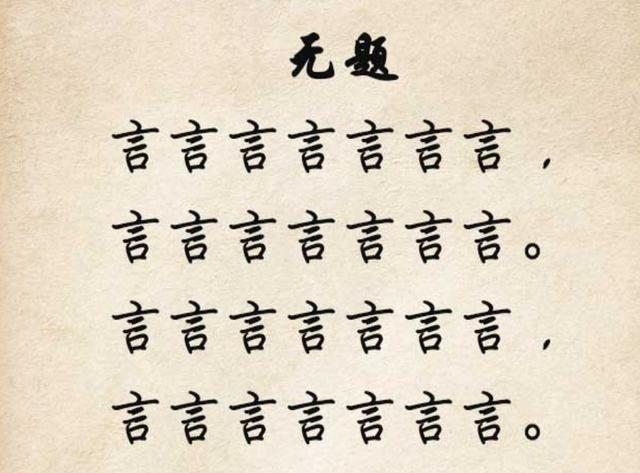 无题
言言言言言言言，
言言言言言言言。
言言言言言言言，
言言言言言言言。